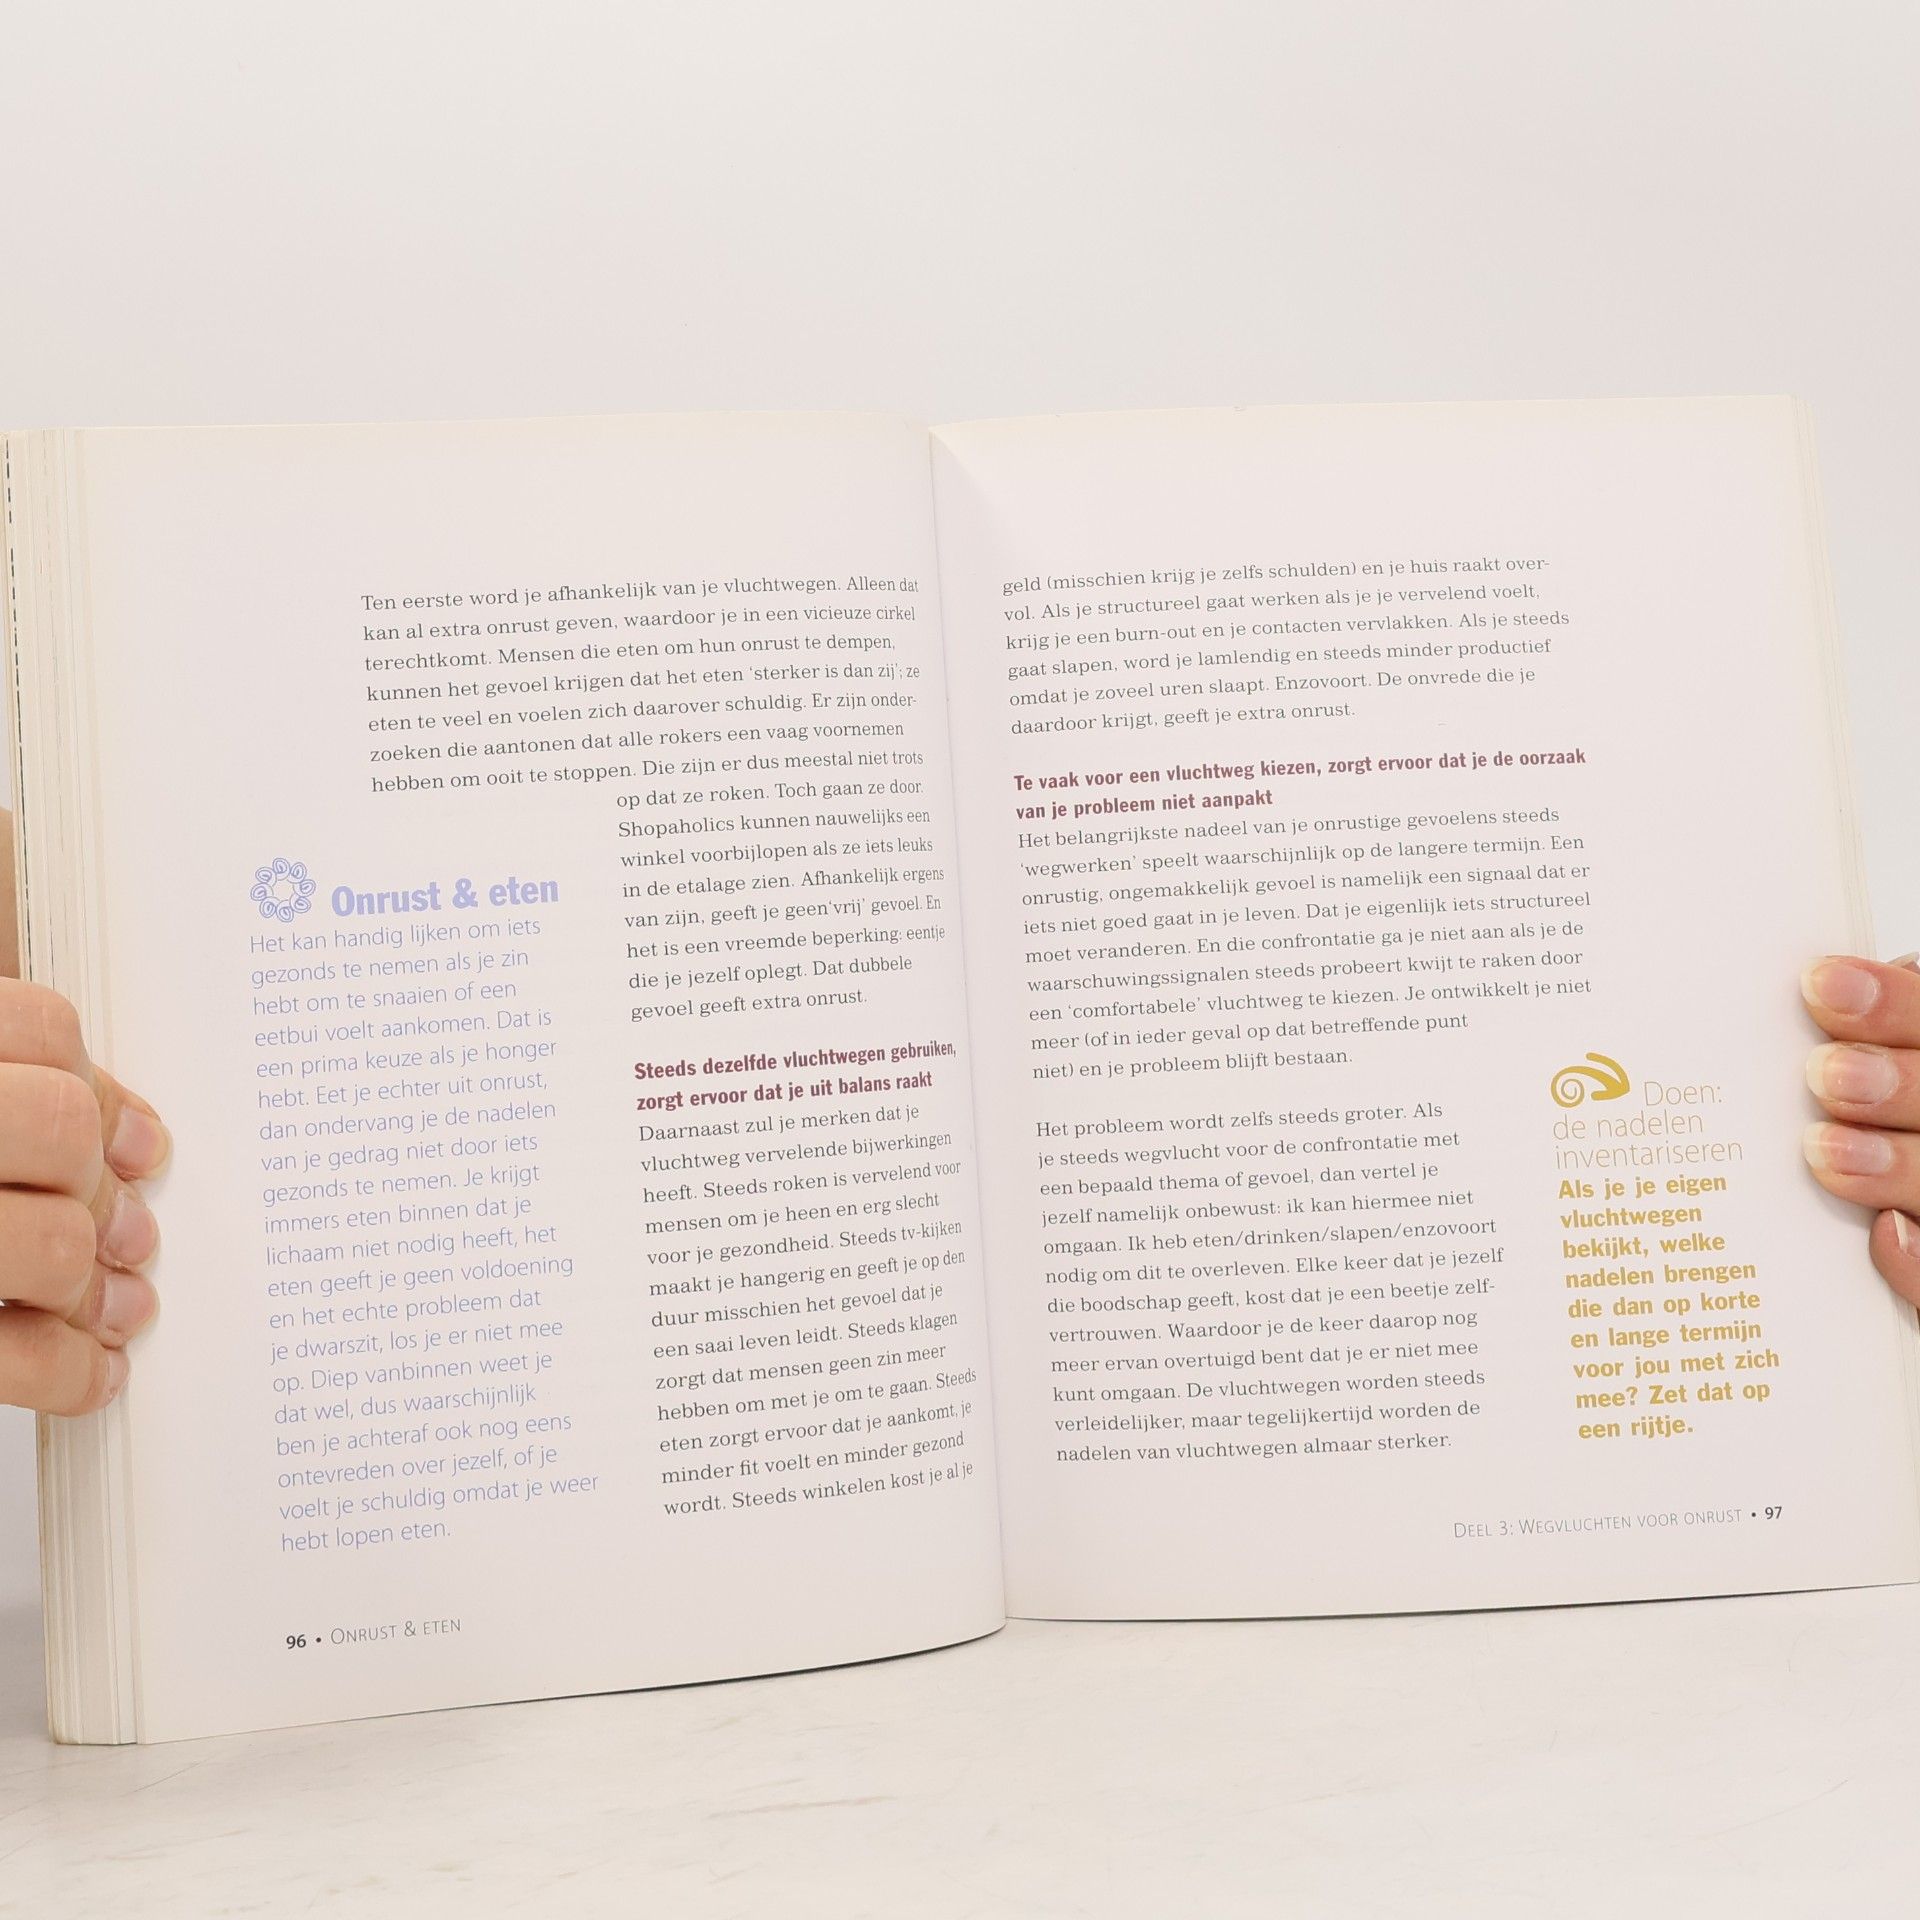 Ten eerste word je afhankelijk van je vluchtwegen. Alleen dat
kan al extra onrust geven, waardoor je in een vicieuze cirkel
terechtkomt. Mensen die eten om hun onrust te dempen,
kunnen het gevoel krijgen dat het eten ‘sterker is dan zij’; ze
eten te veel en voelen zich daarover schuldig. Er zijn onder-
zoeken die aantonen dat alle rokers een vaag voornemen
hebben om ooit te stoppen. Die zijn er dus meestal niet trots
op dat ze roken. Toch gaan ze door.
Shopaholics kunnen nauwelijks een
winkel voorbijlopen als ze iets leuks
in de etalage zien. Afhankelijk ergens
van zijn, geeft je geen‘vrij’ gevoel. En
het is een vreemde beperking: eentje
die je jezelf oplegt. Dat dubbele
gevoel geeft extra onrust.
Steeds dezelfde vluchtwegen gebruiken,
zorgt ervoor dat je uit balans raakt
Daarnaast zul je merken dat je
vluchtweg vervelende bijwerkingen
heeft. Steeds roken is vervelend voor
mensen om je heen en erg slecht
voor je gezondheid. Steeds tv-kijken
maakt je hangerig en geeft je op den
duur misschien het gevoel dat je
een saai leven leidt. Steeds klagen
zorgt dat mensen geen zin meer
hebben om met je om te gaan. Steeds
eten zorgt ervoor dat je aankomt, je
minder fit voelt en minder gezond
wordt. Steeds winkelen kost je al je
Onrust & eten
Het kan handig lijken om iets
gezonds te nemen als je zin
hebt om te snaaien of een
eetbui voelt aankomen. Dat is
een prima keuze als je honger
hebt. Eet je echter uit onrust,
dan ondervang je de nadelen
van je gedrag niet door iets
gezonds te nemen. Je krijgt
immers eten binnen dat je
lichaam niet nodig heeft, het
eten geeft je geen voldoening
en het echte probleem dat
je dwarszit, los je er niet mee
op. Diep vanbinnen weet je
dat wel, dus waarschijnlijk
ben je achteraf ook nog eens
ontevreden over jezelf, of je
voelt je schuldig omdat je weer
hebt lopen eten.
96 • Onrust & eten
geld (misschien krijg je zelfs schulden) en je huis raakt over-
vol. Als je structureel gaat werken als je je vervelend voelt,
krijg je een burn-out en je contacten vervlakken. Als je steeds
gaat slapen, word je lamlendig en steeds minder productief
omdat je zoveel uren slaapt. Enzovoort. De onvrede die je
daardoor krijgt, geeft je extra onrust.
Te vaak voor een vluchtweg kiezen, zorgt ervoor dat je de oorzaak
van je probleem niet aanpakt
Het belangrijkste nadeel van je onrustige gevoelens steeds
‘wegwerken’ speelt waarschijnlijk op de langere termijn. Een
onrustig, ongemakkelijk gevoel is namelijk een signaal dat er
iets niet goed gaat in je leven. Dat je eigenlijk iets structureel
moet veranderen. En die confrontatie ga je niet aan als je de
waarschuwingssignalen steeds probeert kwijt te raken door
een ‘comfortabele’ vluchtweg te kiezen. Je ontwikkelt je niet
meer (of in ieder geval op dat betreffende punt
niet) en je probleem blijft bestaan.
Het probleem wordt zelfs steeds groter. Als
je steeds wegvlucht voor de confrontatie met
een bepaald thema of gevoel, dan vertel je
jezelf namelijk onbewust: ik kan hiermee niet
omgaan. Ik heb eten/drinken/slapen/enzovoort
nodig om dit te overleven. Elke keer dat je jezelf
die boodschap geeft, kost dat je een beetje zelf-
vertrouwen. Waardoor je de keer daarop nog
meer ervan overtuigd bent dat je er niet mee
kunt omgaan. De vluchtwegen worden steeds
verleidelijker, maar tegelijkertijd worden de
nadelen van vluchtwegen almaar sterker.
Doen:
de nadelen
inventariseren
Als je je eigen
vluchtwegen
bekijkt, welke
nadelen brengen
die dan op korte
en lange termijn
voor jou met zich
mee? Zet dat op
een rijtje.
Deel 3: Wegvluchten voor onrust • 97